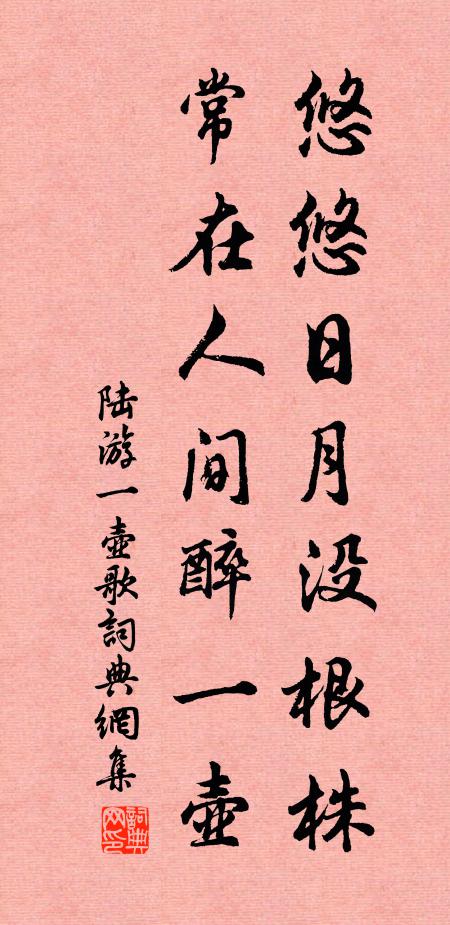 悠悠日月没根株
常在人间醉一壶
陆游一壶歌词典網集
詞典网印